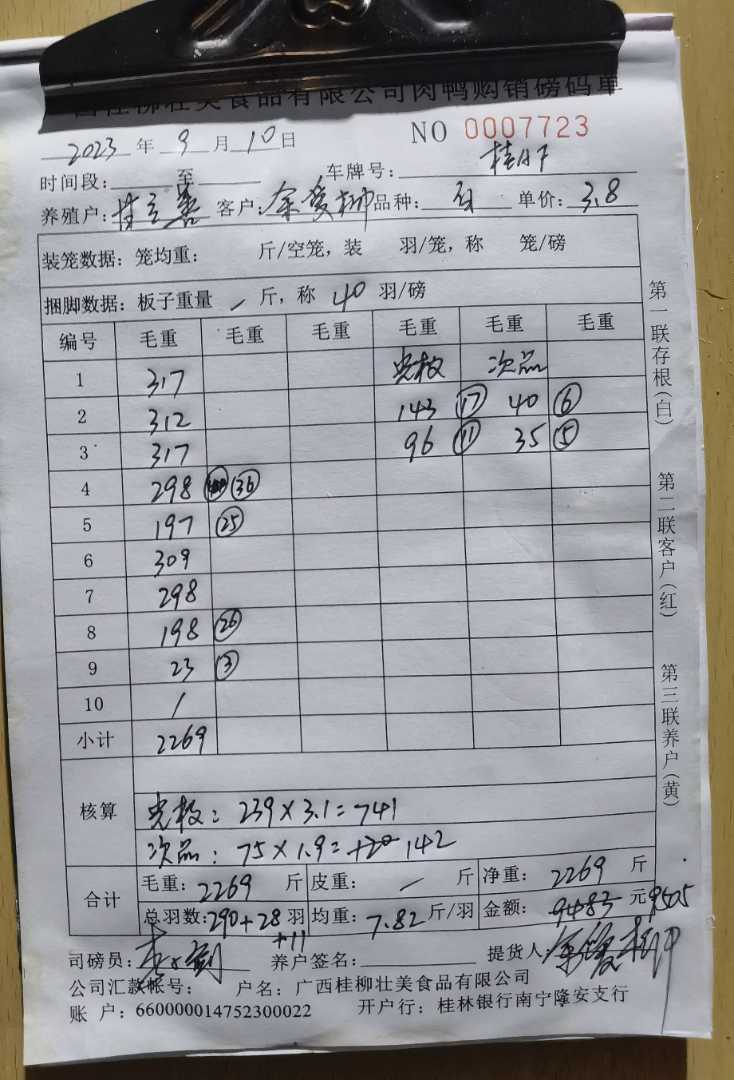 西桂柳壮美食品有限公司肉鸭购销磅码单
2023年9月10日 NO 0007723
时间段: 至 车牌号: 桂A下
养殖户: 客户: 品种: 单价: 3.8
装笼数据: 笼均重: 斤/空笼, 装 羽/笼, 称 笼/磅
捆脚数据: 板子重量 / 斤, 称 40 羽/磅
编号 毛重 毛重 毛重 毛重 毛重 毛重
1 317 光板 次品
2 312 143 17 40 6
3 317 96 11 35 5
4 298 36
5 197 25
6 309
7 298
8 198 26
9 23 3
10 /
小计 2269
核算
光板: 239×3.1=741
次品: 75×1.9= 142
合计
毛重: 2269 斤 皮重: / 斤 净重: 2269 斤
总羽数: 290+28 羽 均重: 7.82 斤/羽 金额: 9483 元 9505
+11
司磅员: 养户签名: 提货人:
公司汇款帐号: 户名: 广西桂柳壮美食品有限公司
账 户: 660000014752300022 开户行: 桂林银行南宁隆安支行
第一联存根(白)
第二联客户(红)
第三联养户(黄)